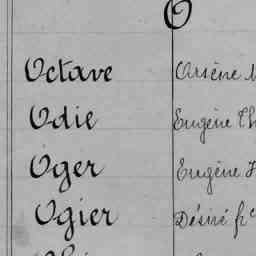 O
Octave Arsène
Odie Eugène
Oger Eugène
Ogier Désiré fr